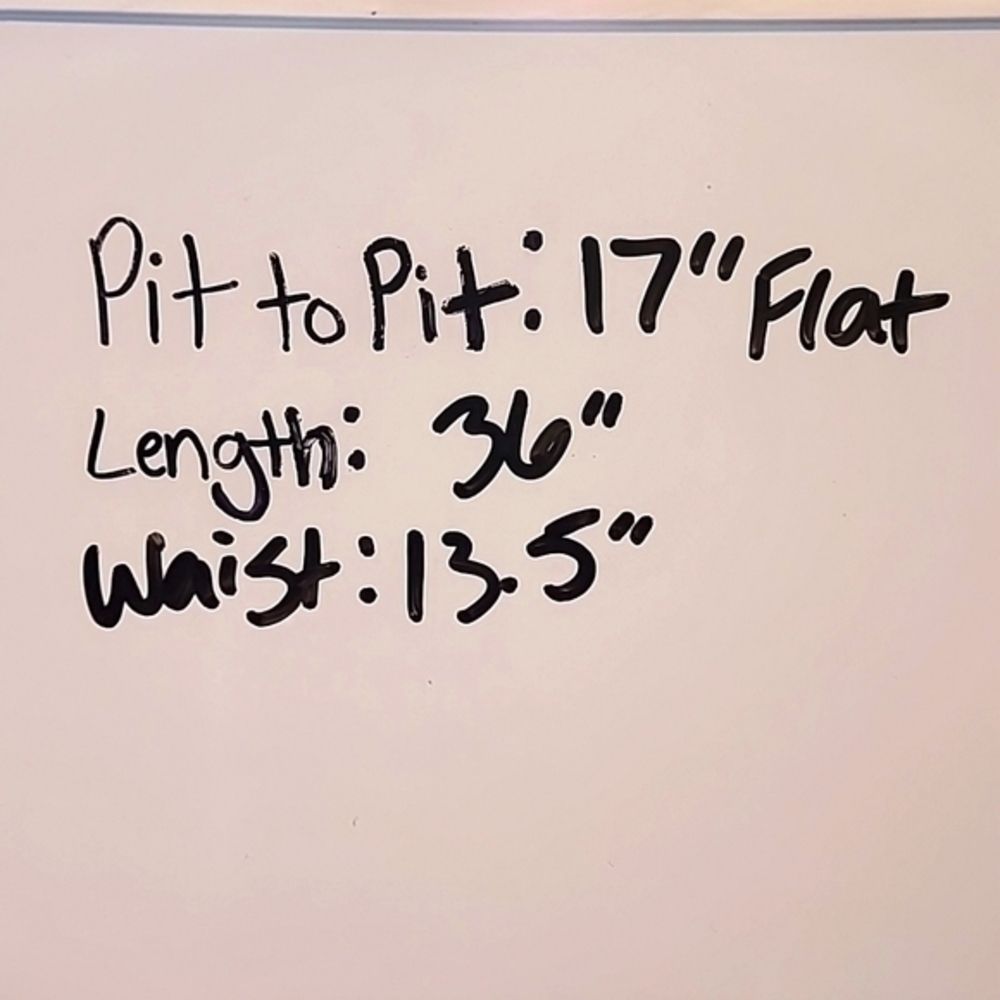 Pit to Pit: 17" Flat
Length: 36"
Waist: 13.5"